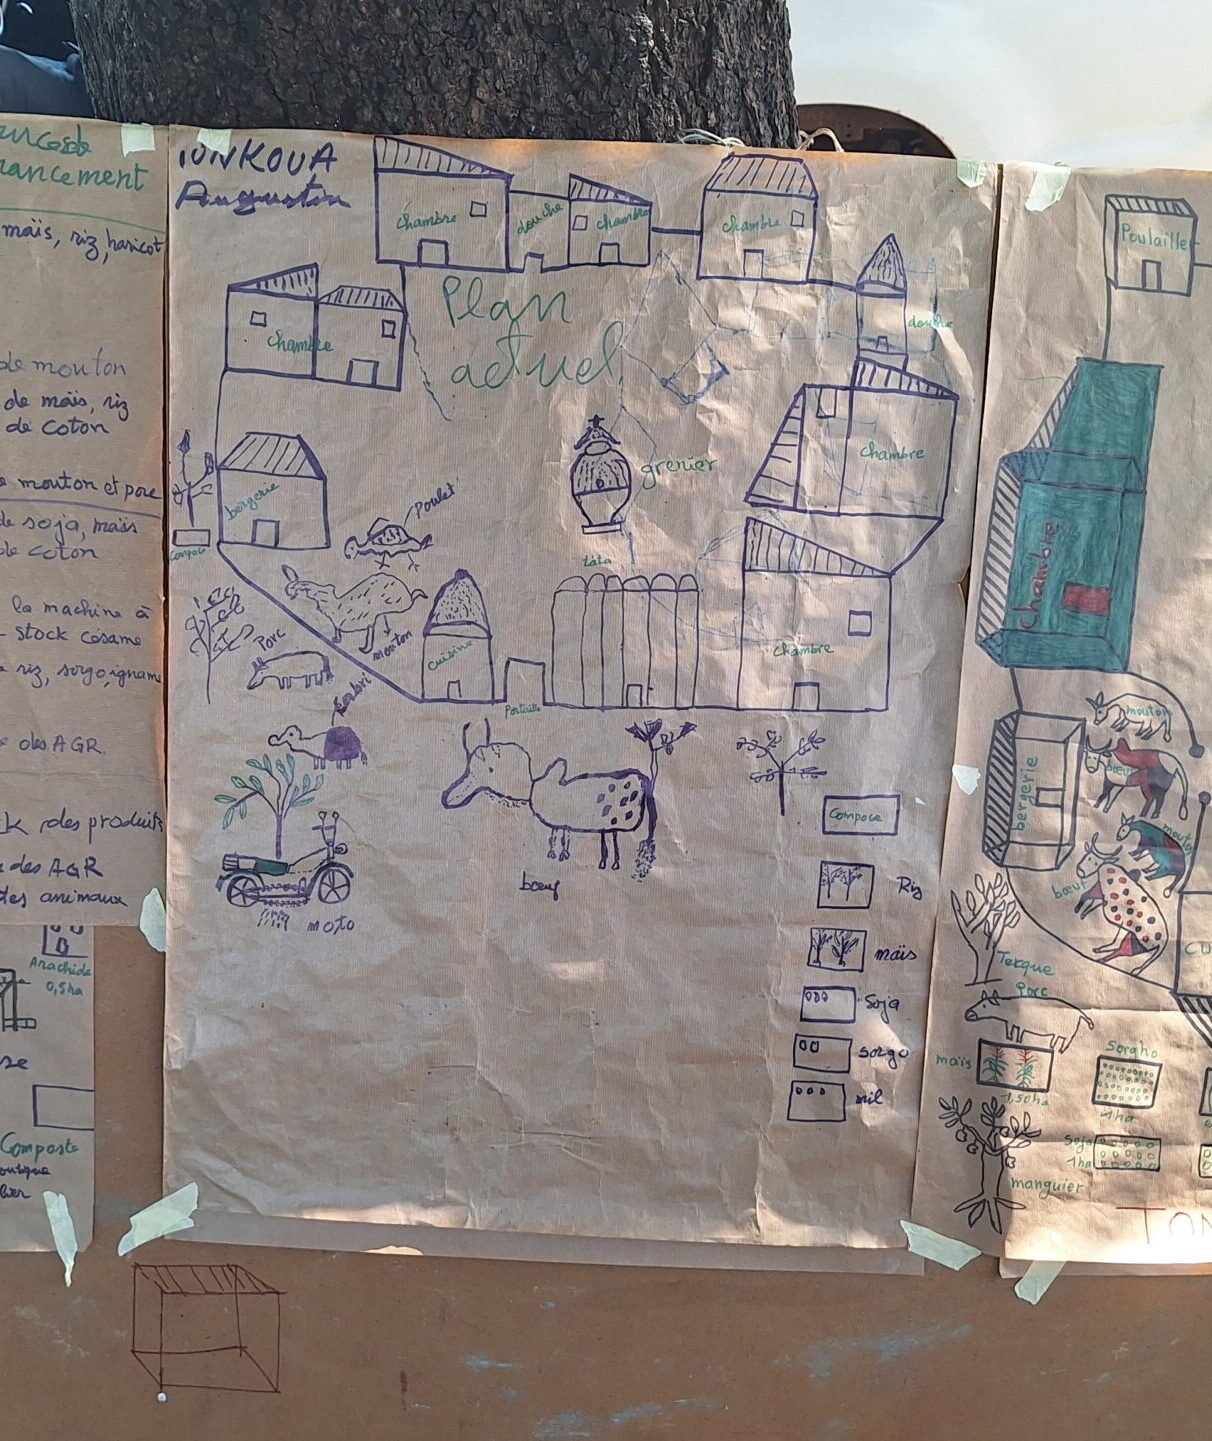 mäis, riz, haricot
de mouton
de maïs, riz
de coton
mouton et porc
de soja, maïs
de coton
la machine à
stock césame
riz, sorgo, igname
des AGR.
des produits
des AGR
des animaux
Arachide
0,5ha
Composte
TONKOUA
Augustin
Plan
actuel
chambre
douche
chambre
chambre
chambre
douche
chambre
bergerie
compose
Poulet
grenier
mouton
Porc
cuisine
Portaille
tata
chambre
moto
bœuf
Compose
Riz
maïs
Soja
sorgo
mil
Poulailler
Chambre
bergerie
mouton
bœuf
mouton
bœuf
Porc
maïs
1,50ha
Sorgho
1ha
Soja
1ha
manguier